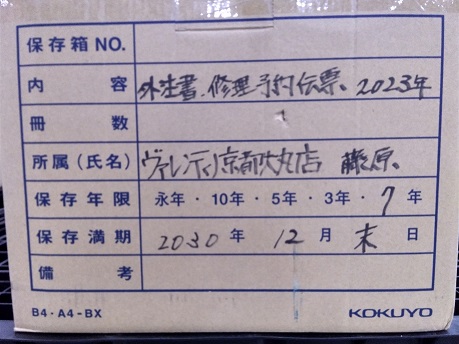 保存箱NO.
内容 外注書、修理予約伝票、2023年
冊数
所属(氏名) ヴァレンティノ京都大丸店 藤原、
保存年限 永年・10年・5年・3年・7年
保存満期 2030年 12月 末日
備考
B4・A4-BX KOKUYO